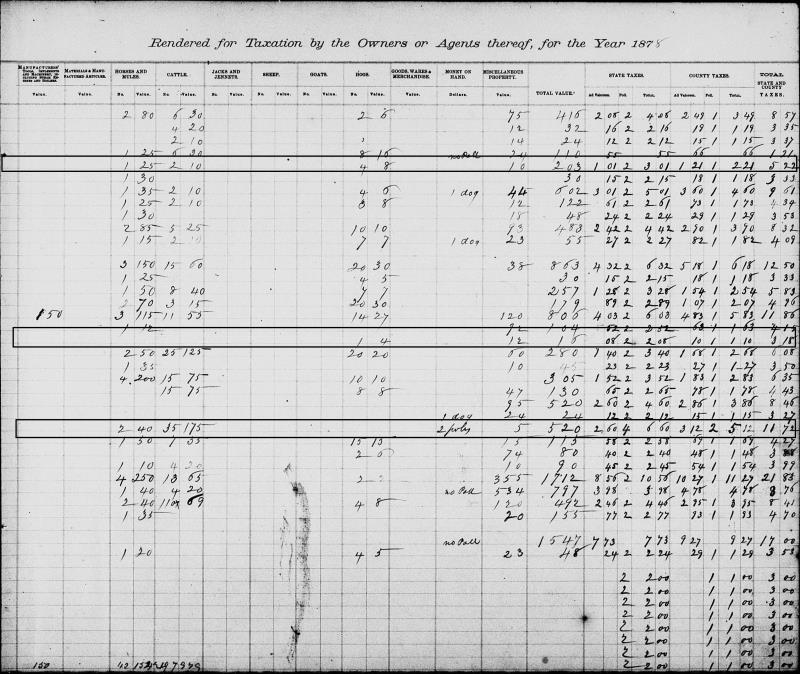 Rendered for Taxation by the Owners or Agents thereof, for the Year 1878
MANUFACTURERS' TOOLS, IMPLEMENTS AND MACHINERY, Value. MATERIALS & MANUFACTURED ARTICLES. Value. HORSES AND MULES. No. Value. CATTLE. No. Value. JACKS AND JENNETS. No. Value. SHEEP. No. Value. GOATS. No. Value. HOGS. No. Value. GOODS, WARES & MERCHANDISE. Value. MONEY ON HAND. Dollars. MISCELLANEOUS PROPERTY. Value. TOTAL VALUE. STATE TAXES. Ad Valorem. Poll. Total. COUNTY TAXES. Ad Valorem. Poll. Total. TOTAL STATE AND COUNTY TAXES.
2 80 6 30 2 6 75 416 2 08 2 4 08 2 49 1 3 49 8 57
4 20 12 32 16 2 2 16 19 1 1 19 3 35
2 10 14 24 12 2 2 12 15 1 1 15 3 37
1 25 6 30 8 16 no Poll 24 110 55 55 66 66 1 21
1 25 2 10 4 8 10 203 1 01 2 3 01 1 21 1 2 21 5 22
1 30 30 15 2 2 15 18 1 1 18 3 33
1 35 2 10 4 6 1 dog 44 602 3 01 2 5 01 3 60 1 4 60 9 61
1 25 2 10 3 8 12 122 61 2 2 61 73 1 1 73 4 34
1 30 18 48 24 2 2 24 29 1 1 29 3 53
2 85 5 25 10 10 93 483 2 42 2 4 42 2 90 1 3 90 8 32
1 15 2 10 7 7 1 dog 23 55 27 2 2 27 82 1 1 82 4 09
3 150 15 60 20 30 38 863 4 32 2 6 32 5 18 1 6 18 12 50
1 25 4 5 30 15 2 2 15 18 1 1 18 3 33
1 50 8 40 7 7 257 1 28 2 3 28 1 54 1 2 54 5 83
2 70 3 15 20 30 179 89 2 2 89 1 07 1 2 07 4 96
150 3 115 11 55 14 27 120 806 4 03 2 6 03 4 83 1 5 83 11 86
1 12 92 104 52 2 2 52 63 1 1 63 4 15
1 4 12 16 08 2 2 08 10 1 1 10 3 18
2 50 25 125 20 20 60 280 1 40 2 3 40 1 68 1 2 68 6 08
1 35 10 45 23 2 2 23 27 1 1 27 3 50
4 200 15 75 10 10 305 1 52 2 3 52 1 83 1 2 83 6 35
15 75 8 8 47 130 65 2 2 65 78 1 1 78 4 43
95 520 2 60 2 4 60 2 86 1 3 86 8 46
1 dog 24 24 12 2 2 12 15 1 1 15 3 27
2 40 35 175 2 polls 5 520 2 60 4 6 60 3 12 2 5 12 11 72
1 50 7 35 15 13 15 113 58 2 2 58 67 1 1 67 4 27
2 6 74 80 40 2 2 40 48 1 1 48 3
1 10 4 20 10 90 45 2 2 45 54 1 1 54 3 99
4 250 13 65 2 355 1712 8 56 2 10 56 10 27 1 11 27 21 83
1 40 4 20 no Poll 534 797 3 98 3 98 4 78 4 78 8 76
2 40 69 4 8 120 492 2 46 2 4 46 2 95 1 3 95 8 41
1 35 20 155 77 2 2 77 93 1 1 93 4 70
no Poll 1547 7 73 7 73 9 27 9 27 17 00
1 20 4 5 23 48 24 2 2 24 29 1 1 29 3 53
2 2 00 1 1 00 3 00
2 2 00 1 1 00 3 00
2 2 00 1 1 00 3 00
2 2 00 1 1 00 3 00
2 2 00 1 1 00 3 00
2 2 00 1 1 00 3 00
2 2 00 1 1 00 3 00
150 42
2 2 00 1 1 00 3 00